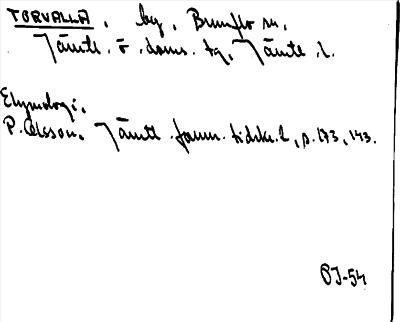 TORVALLA, by, Brunflo sn,
Jämtl. ö. doms. tg, Jämtl. l.
Etymologi.
P. Olsson, Jämtl. forn. tidskr. 2, p. 173, 143.
OJ-54